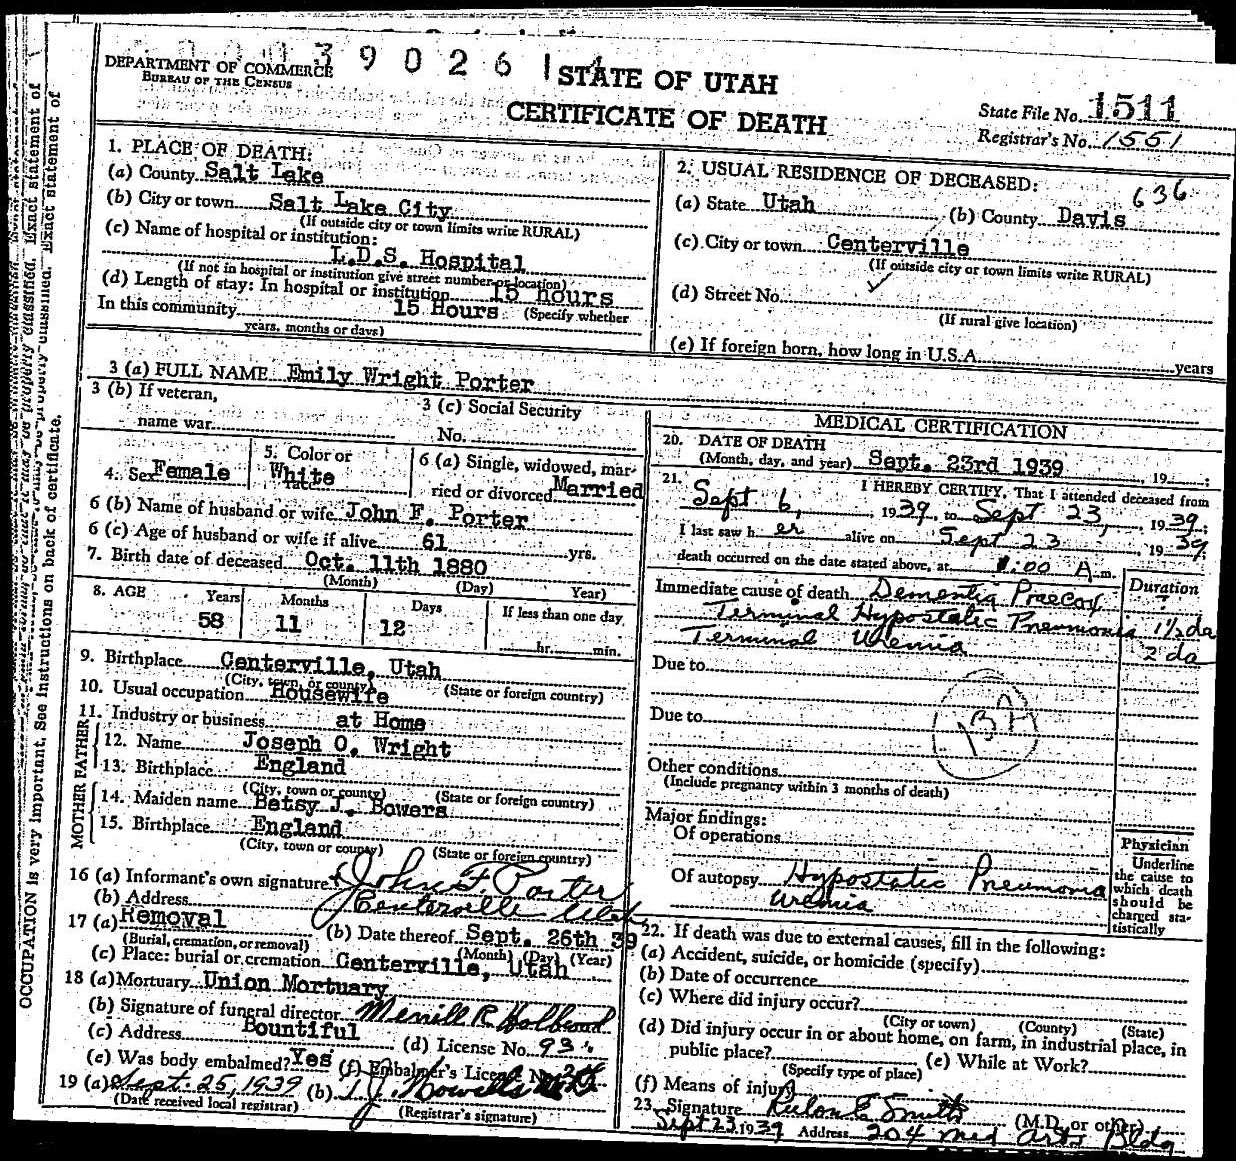 39026
DEPARTMENT OF COMMERCE
BUREAU OF THE CENSUS
STATE OF UTAH
CERTIFICATE OF DEATH
State File No. 1511
Registrar's No. 1551
1. PLACE OF DEATH:
(a) County Salt Lake
(b) City or town Salt Lake City
(If outside city or town limits write RURAL)
(c) Name of hospital or institution:
L.D.S. Hospital
(If not in hospital or institution give street number or location)
(d) Length of stay: In hospital or institution 15 hours
In this community 15 Hours (Specify whether
years, months or days)
2. USUAL RESIDENCE OF DECEASED:
636
(a) State Utah (b) County Davis
(c) City or town Centerville
(If outside city or town limits write RURAL)
(d) Street No.
(If rural give location)
(e) If foreign born, how long in U.S.A. years
3 (a) FULL NAME Emily Wright Porter
3 (b) If veteran,
name war
3 (c) Social Security
No.
4. Sex Female
5. Color or
race White
6 (a) Single, widowed, mar-
ried or divorced Married
6 (b) Name of husband or wife John F. Porter
6 (c) Age of husband or wife if alive 61 yrs.
7. Birth date of deceased Oct. 11th 1880
(Month) (Day) Year)
8. AGE Years Months Days If less than one day
58 11 12 hr. min.
9. Birthplace Centerville, Utah
(City, town, or county) (State or foreign country)
10. Usual occupation Housewife
11. Industry or business at Home
FATHER
12. Name Joseph O. Wright
13. Birthplace England
(City, town or county) (State or foreign country)
MOTHER
14. Maiden name Betsy J. Bowers
15. Birthplace England
(City, town or county) (State or foreign country)
16 (a) Informant's own signature John F. Porter
(b) Address Centerville Utah
17 (a) Removal (b) Date thereof Sept. 26th 39
(Burial, cremation, or removal) (Month) (Day) (Year)
(c) Place: burial or cremation Centerville, Utah
18 (a) Mortuary Union Mortuary
(b) Signature of funeral director Merrill R Holbrook
(c) Address Bountiful (d) License No. 93
(e) Was body embalmed? Yes (f) Embalmer's License No.
19 (a) Sept. 25, 1939 (b) T. J. Howells
(Date received local registrar) (Registrar's signature)
MEDICAL CERTIFICATION
20. DATE OF DEATH
(Month, day, and year) Sept. 23rd 1939, 19 ;
21. I HEREBY CERTIFY, That I attended deceased from
Sept 6, 1939, to Sept 23, 1939;
I last saw h er alive on Sept 23, 1939;
death occurred on the date stated above, at 1:00 A m.
Immediate cause of death Dementia Praecox Duration
?
Terminal Hypostatic Pneumonia 1½ da
Terminal Uremia 2 da
Due to
Due to
Other conditions
(Include pregnancy within 3 months of death)
Major findings:
Of operations
Of autopsy Hypostatic Pneumonia
Uremia
Physician
Underline
the cause to
which death
should be
charged sta-
tistically
22. If death was due to external causes, fill in the following:
(a) Accident, suicide, or homicide (specify)
(b) Date of occurrence
(c) Where did injury occur?
(City or town) (County) (State)
(d) Did injury occur in or about home, on farm, in industrial place, in
public place? (e) While at Work?
(Specify type of place)
(f) Means of injury
23. Signature Rulon E Smith (M.D. or other)
Sept 23, 1939 Address 204 Med Arts Bldg
OCCUPATION is very important. See Instructions on back of certificate.
may be properly classified. Exact statement of